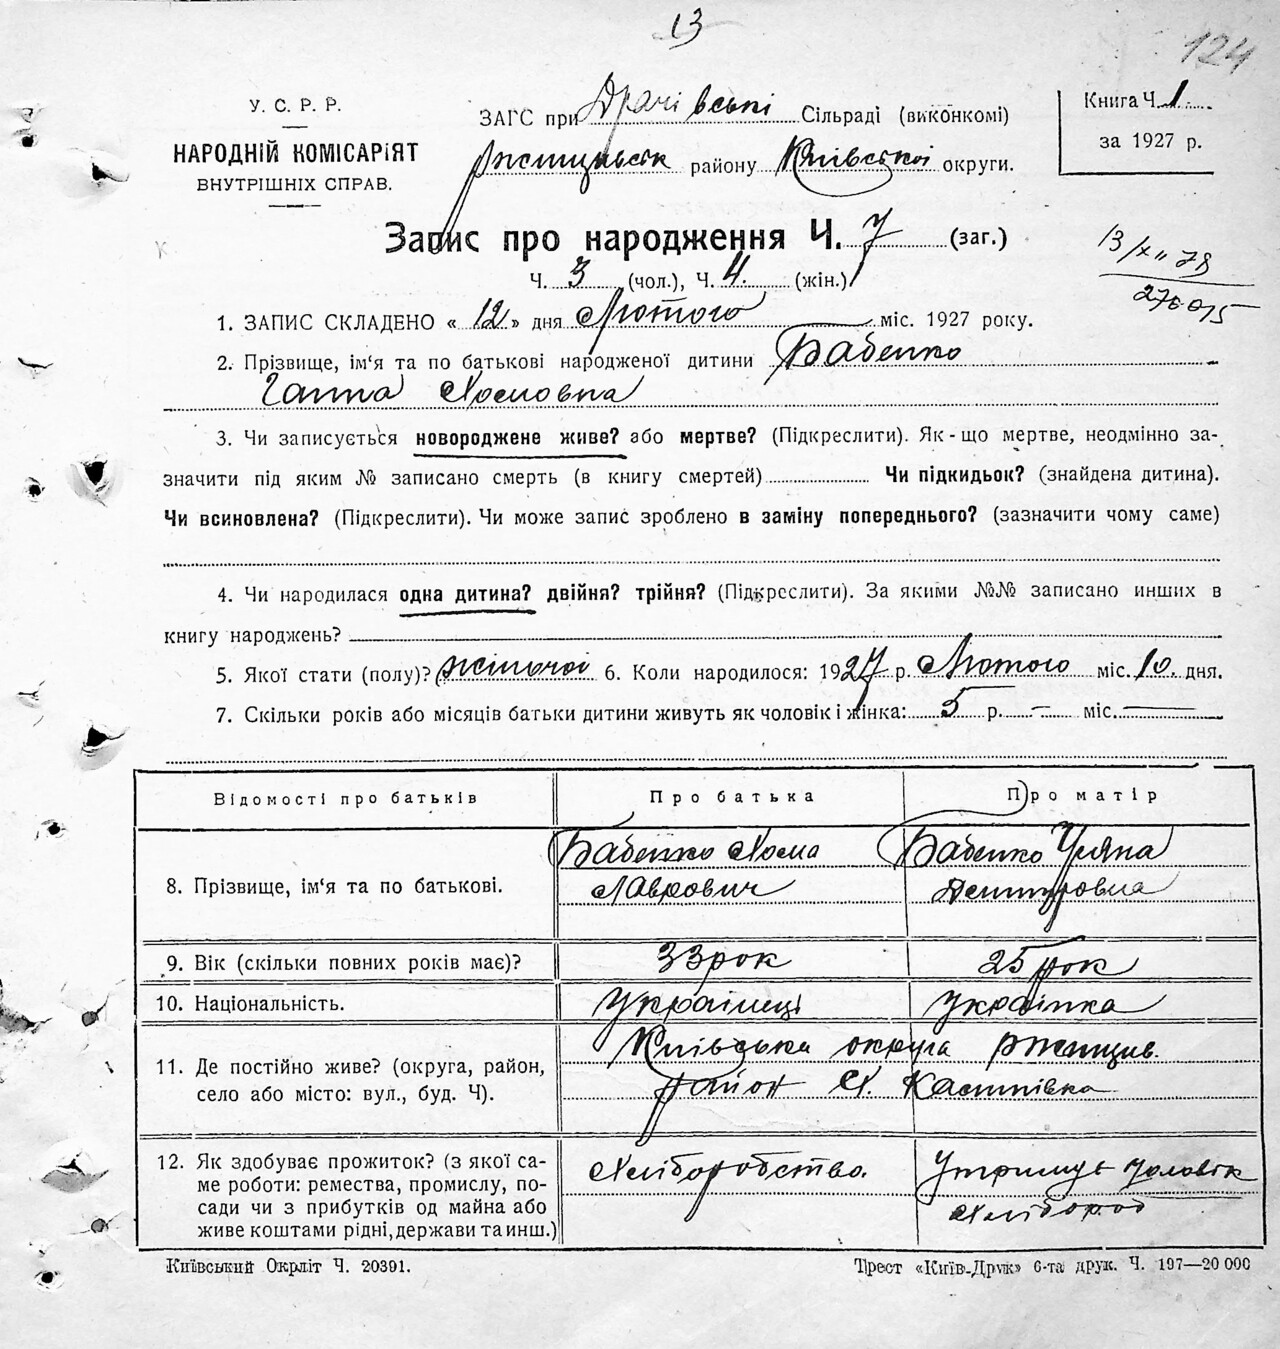 13
124
У. С. Р. Р.
НАРОДНІЙ КОМІСАРІЯТ
ВНУТРІШНІХ СПРАВ.
ЗАГС при Драчівські Сільраді (виконкомі)
Ржищівськ району Київської округи.
Книга Ч. 1.
за 1927 р.
Запис про народження Ч. 7 (заг.)
Ч. 3 (чол.), Ч. 4. (жін.)
13/XII 78
276015
1. ЗАПИС СКЛАДЕНО « 12 » дня Лютого міс. 1927 року.
2. Прізвище, ім'я та по батькові народженої дитини Бабенко
Ганна Хомовна
3. Чи записується новороджене живе? або мертве? (Підкреслити). Як-що мертве, неодмінно за-
значити під яким № записано смерть (в книгу смертей) Чи підкидьок? (знайдена дитина).
Чи всиновлена? (Підкреслити). Чи може запис зроблено в заміну попереднього? (зазначити чому саме)
4. Чи народилася одна дитина? двійня? трійня? (Підкреслити). За якими №№ записано инших в
книгу народжень?
5. Якої стати (полу)? жіночої 6. Коли народилося: 1927 р. Лютого міс. 10. дня.
7. Скільки років або місяців батьки дитини живуть як чоловік і жінка: 5 р. — міс. —
Відомості про батьків Про батька Про матір
8. Прізвище, ім'я та по батькові. Бабенко Хома Лаврович Бабенко Уляна Дмитровна
9. Вік (скільки повних років має)? 33 рок 25 рок
10. Національність. Українец Українка
11. Де постійно живе? (округа, район, Київська округа Ржищив.
село або місто: вул., буд. Ч). район Х.
12. Як здобуває прожиток? (з якої са- Хліборобство. Утримує чоловік
ме роботи: ремества, промислу, по- Хлібороб
сади чи з прибутків од майна або
живе коштами рідні, держави та инш.)
Київський Окрліт Ч. 20391. Трест «Київ-Друк» 6-та друк. Ч. 197—20 000